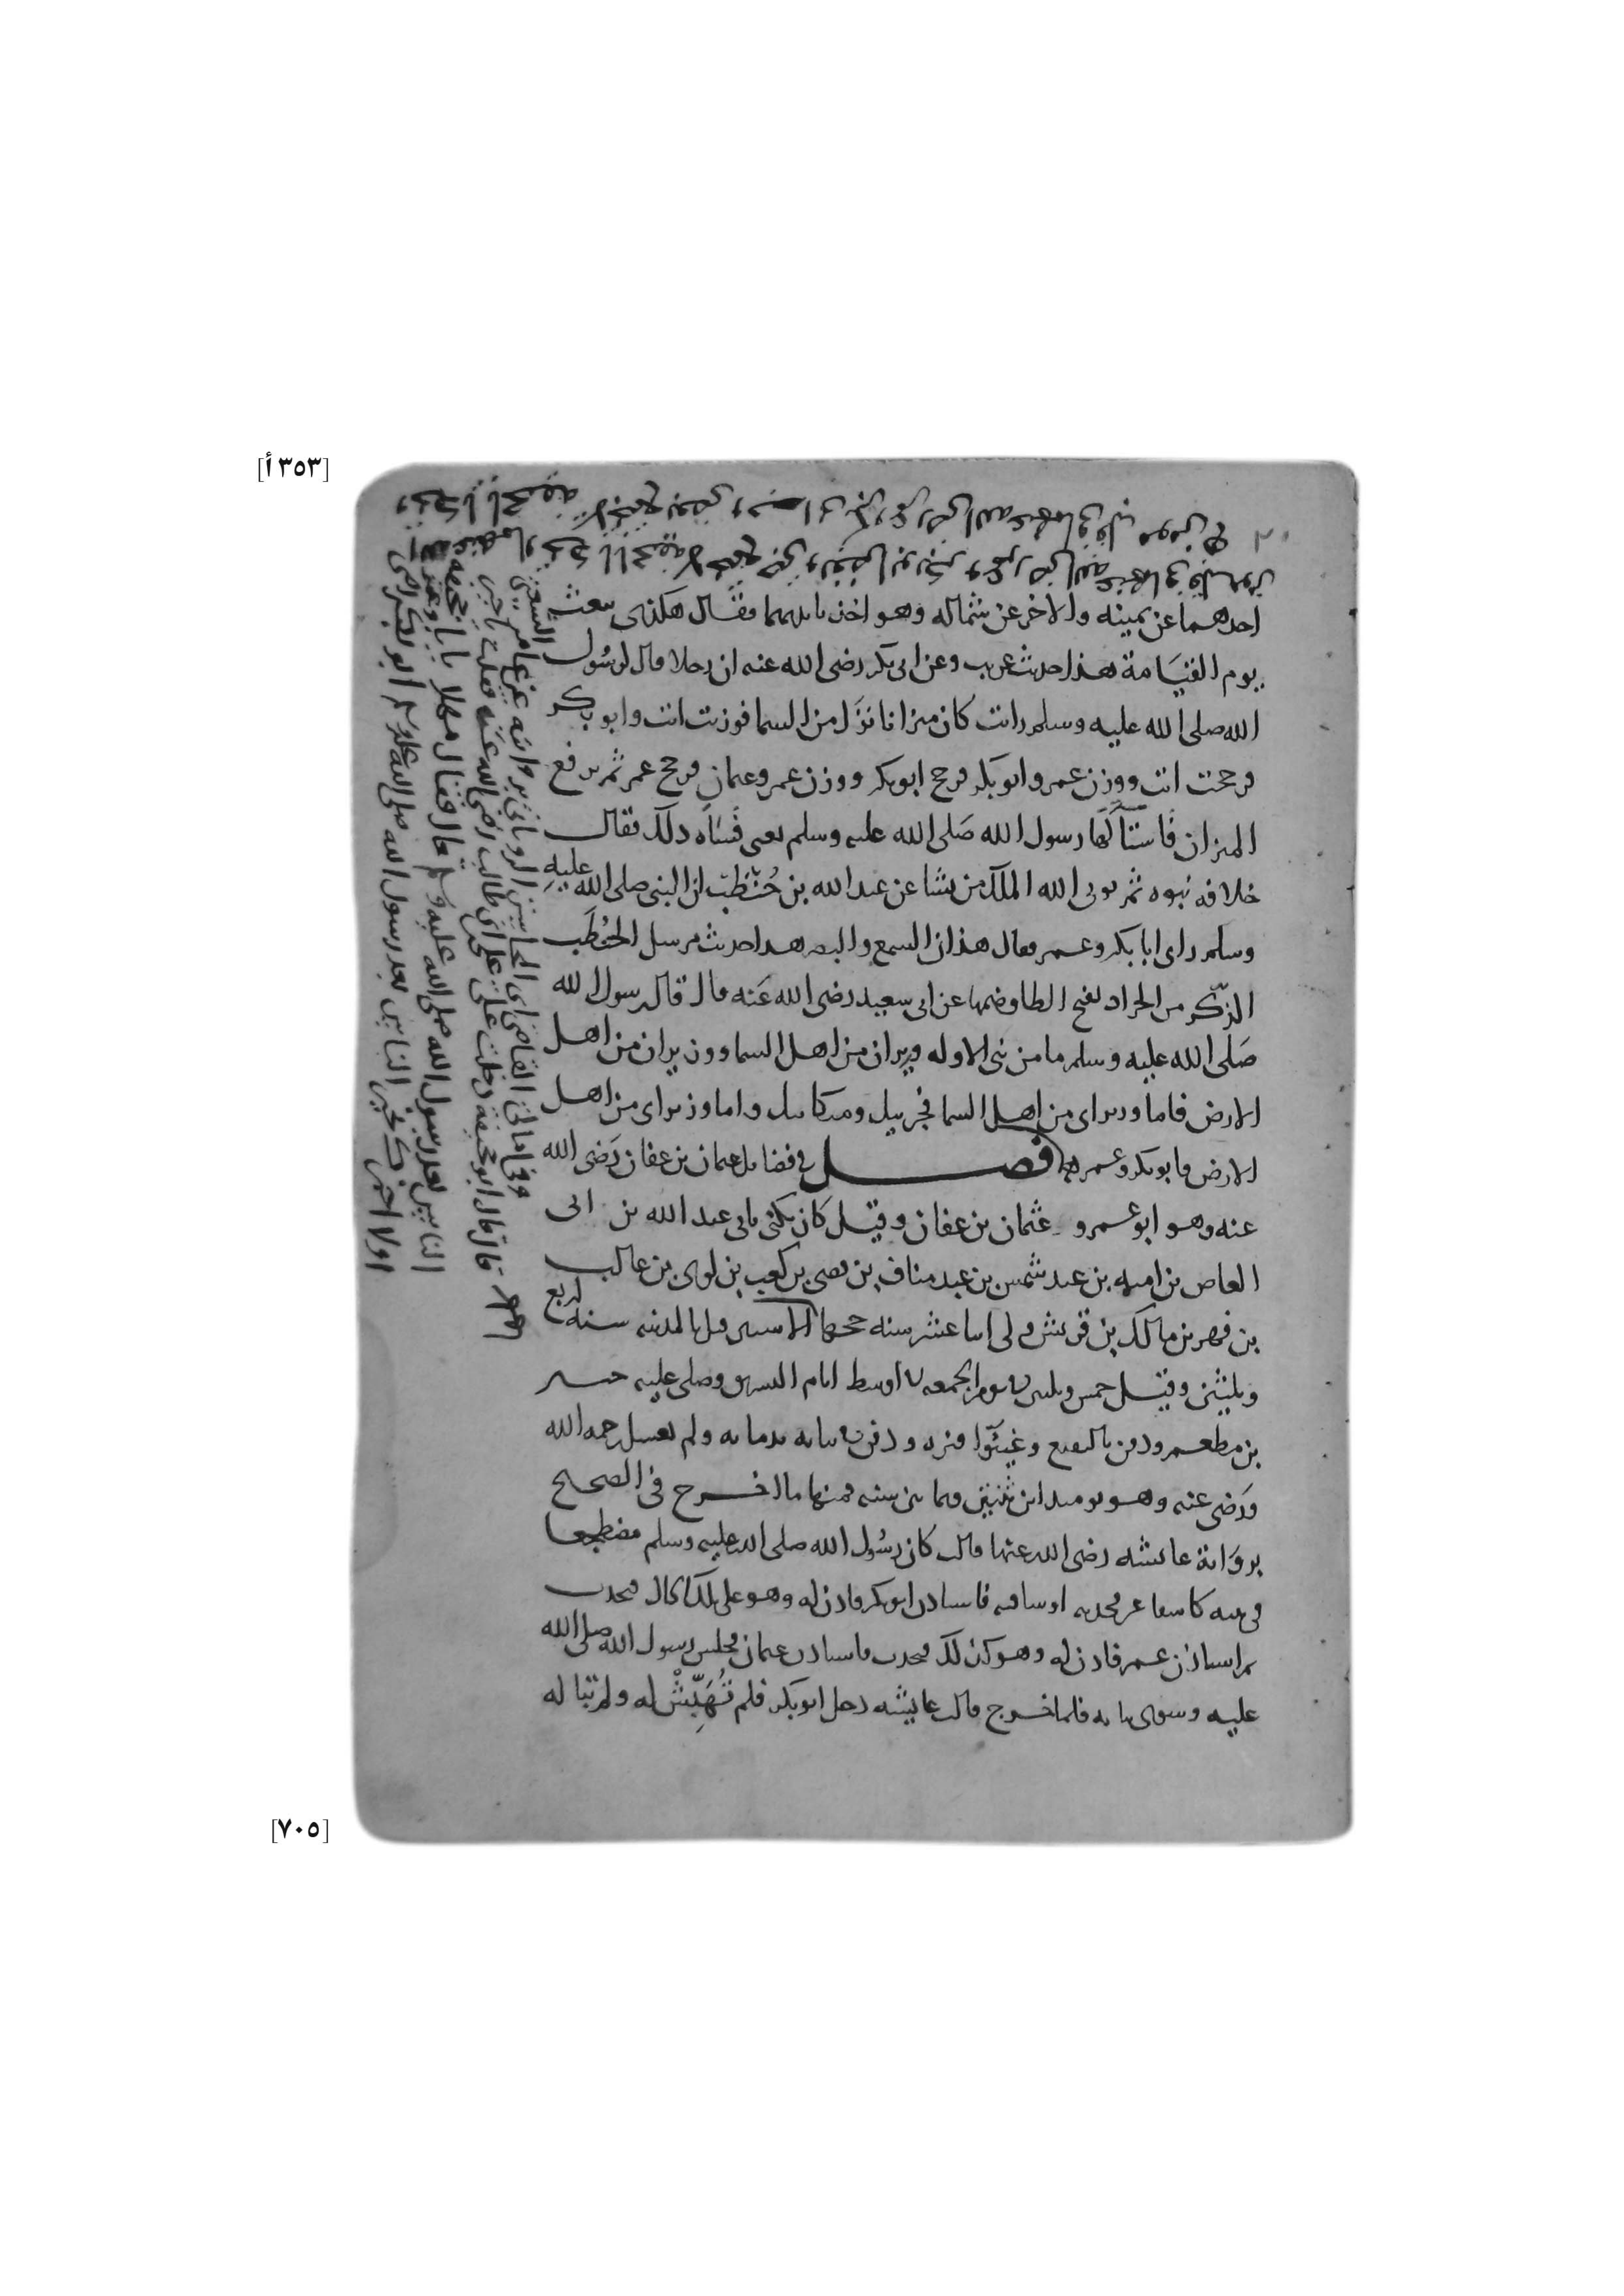 [٣٥٣ أ]
احدهما عن يمينه والاخر عن شماله وهو اخذ بايديهما فقال هكذى نبعث
يوم القيامة هذا حديث غريب وعن ابى بكر رضى الله عنه ان رجلا قال لرسول
الله صلى الله عليه وسلم رايت كان ميزانا نزل من السما فوزنت انت وابو بكر
فرجحت انت ووزن عمر وابو بكر فرجح ابو بكر ووزن عمر وعثمان فرجح عمر ثم رفع
الميزان فاستآ لها رسول الله صلى الله عليه وسلم يعنى فساه ذلك فقال
خلافه نبوه ثم يوتى الله الملك من يشا عن عبد الله بن حنطب ان النبى صلى الله عليه
وسلم راى ابا بكر وعمر فقال هذان السمع والبصر هذا حديث مرسل الحنطب
الذكر من الجراد بفتح الطا وضمها عن ابى سعيد رضى الله عنه قال قال رسول الله
صلى الله عليه وسلم ما من نبى الا وله وزيران من اهل السما ووزيران من اهل
الارض فاما وزيراى من اهل السما فجبريل وميكاييل واما وزيراى من اهل
الارض فابو بكر وعمر فصل فى فضايل عثمان بن عفان رضى الله
عنه وهو ابو عمرو عثمان بن عفان وقيل كان يكنى بابى عبد الله بن ابى
العاص بن اميه بن عبد شمس بن عبد مناف بن قصى بن كعب بن لوى بن غالب
بن فهر بن مالك بن قريش ولى اثنا عشر سنه حجها الا سنتين قتل بالمدينه سنه اربع
وثلثين وقيل خمس وثلثين يوم الجمعه اوسط ايام التشريق وصلى عليه جبير
بن مطعم ودفن بالبقيع وغيبوا قبره ودفن بثيابه بدمايه ولم يغسل رحمه الله
ورضى عنه وهو يوميذ ابن ثنتين وثمانين سنه فمنها ما اخرج فى الصحيح
برواية عايشه رضى الله عنها قالت كان رسول الله صلى الله عليه وسلم مضطجعا
فى بيته كاشفا عن فخديه او ساقيه فاستاذن ابو بكر فاذن له وهو على تلك الحال فتحدث
ثم استاذن عمر فاذن له وهو كذلك فتحدث فاستاذن عثمان فجلس رسول الله صلى الله
عليه وسوى ثيابه فلما خرج قالت عايشه دخل ابو بكر فلم تهتش له ولم تباله
وفى امالى القاضى ابى المحاسن الرويانى بروايته عن عامر الشعبى
قال قال ابو جحيفة دخلت على على بن ابى طالب رضى الله عنه فقلت يا خير
الناس بعد رسول الله صلى الله عليه وسلم قال فقال مهلا يا ابا جحيفه
اولا اخبرك بخير الناس بعد رسول الله صلى الله عليه وسلم ابو بكر
[٧٠٥]